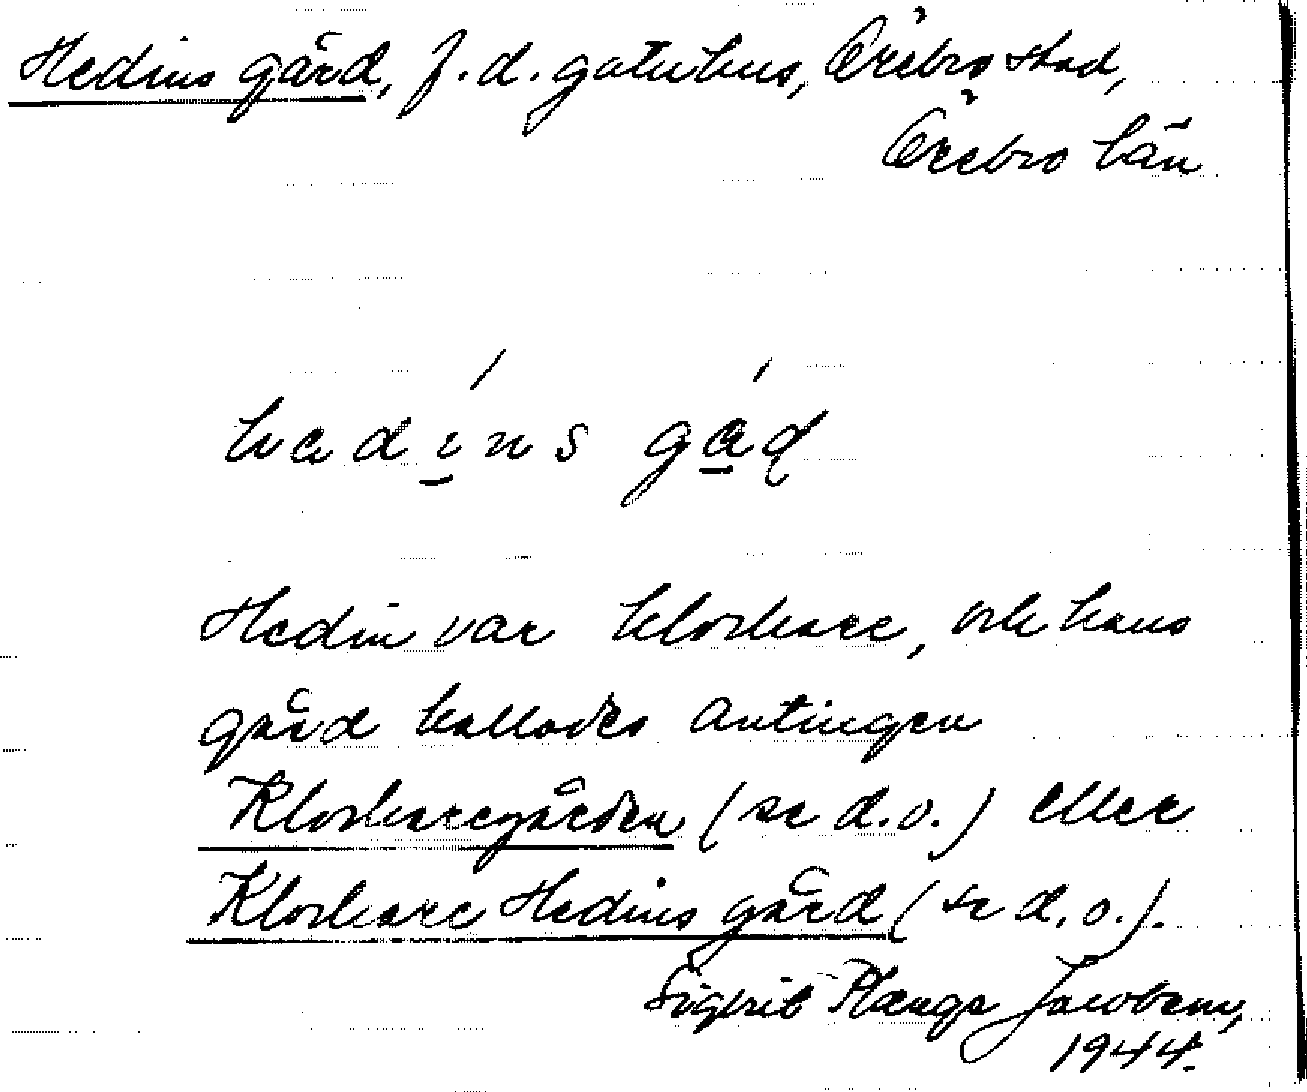 Hedins gård, f.d. gatuhus, Örebro stad,
Örebro län
hedins gåd
Hedin var klockare, och hans
gård kallades antingen
Klockaregården (se d.o.) eller
Klockare Hedins gård (se d.o.).
Sigbrit Plænge Jacobson,
1944.